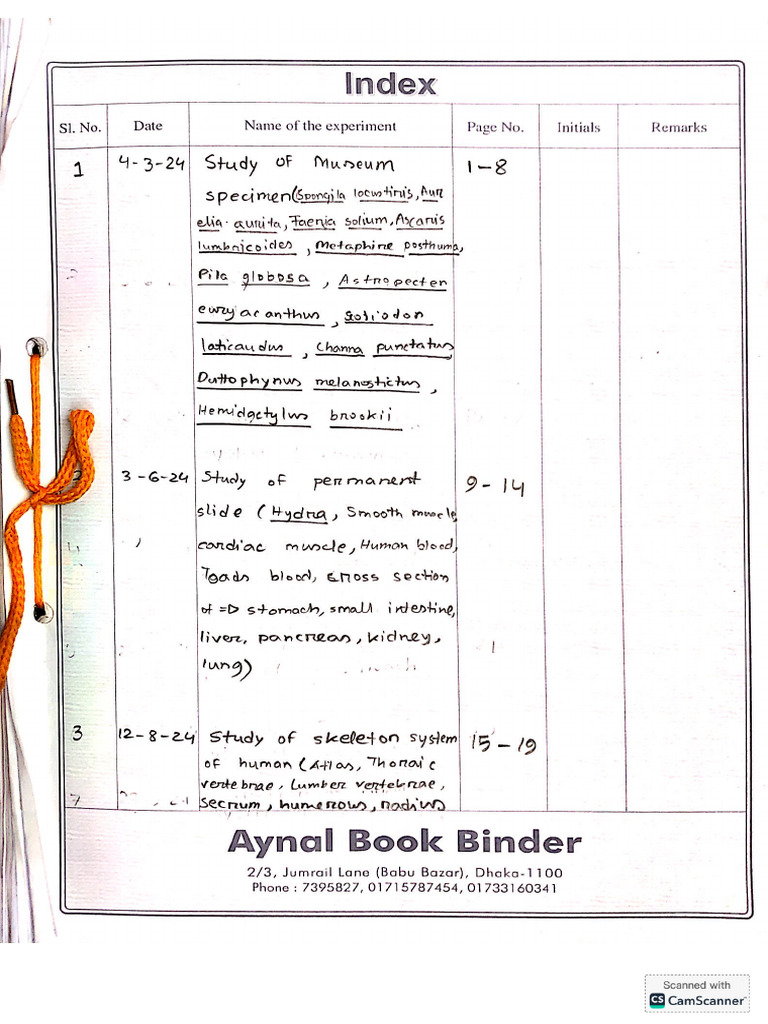 Index
Sl. No. Date Name of the experiment Page No. Initials Remarks
1 4-3-24 Study of Museum 1-8
specimen (Spongila locustinis, Aur
elia. aurita, Taenia solium, Ascaris
lumbricoides, Metaphire posthuma,
Pila globosa, Astropecten
euryacanthus, Scoliodon
laticaudus, Channa punctatus
Duttophynus melanostictus,
Hemidactylus brookii
3-6-24 Study of permanent 9-14
slide (Hydra, Smooth muscle,
cardiac muscle, Human blood,
Toads blood, cross section
of => stomach, small intestine,
liver, pancreas, kidney,
lung)
3 12-8-24 Study of skeleton system 15-19
of human (Atlas, Thoraic
vertebrae, Lumber vertebrae,
Secrum, humerous, radius
Aynal Book Binder
2/3, Jumrail Lane (Babu Bazar), Dhaka-1100
Phone : 7395827, 01715787454, 01733160341
Scanned with
CS CamScanner